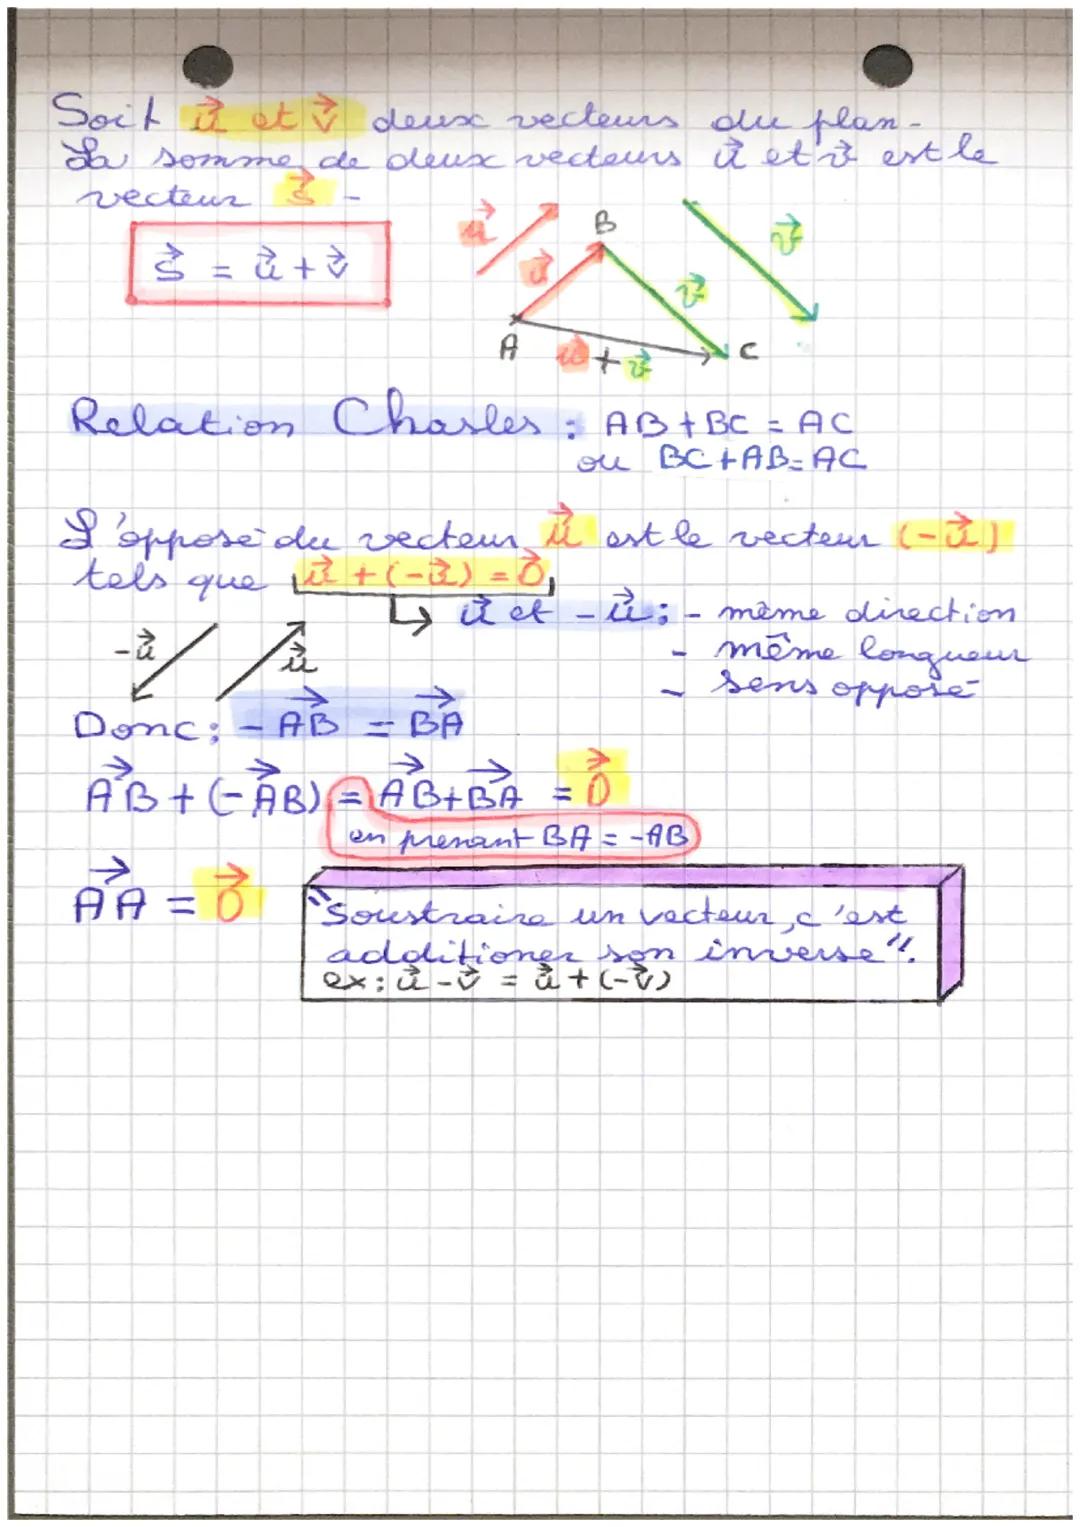 Soit u⃗ et v⃗ deux vecteurs du plan-
La somme de deux vecteurs u⃗ et v⃗ est le
vecteur s⃗ -
s⃗ = u⃗ + v⃗
u⃗
u⃗
B
v⃗
v⃗
A
u⃗ + v⃗
C
Relation Chasles : AB + BC = AC
ou BC + AB = AC
L'opposé du vecteur u⃗ est le vecteur (-u⃗)
tels que u⃗ + (-u⃗) = 0⃗
↳ u⃗ et -u⃗ : - même direction
- même longueur
- sens opposé
-u⃗
u⃗
Donc : -AB⃗ = BA⃗
AB⃗ + (-AB⃗) = AB⃗ + BA⃗ = 0⃗
en prenant BA = -AB
AA⃗ = 0⃗
"Soustraire un vecteur, c'est
additioner son inverse".
ex : u⃗ - v⃗ = u⃗ + (-v⃗)